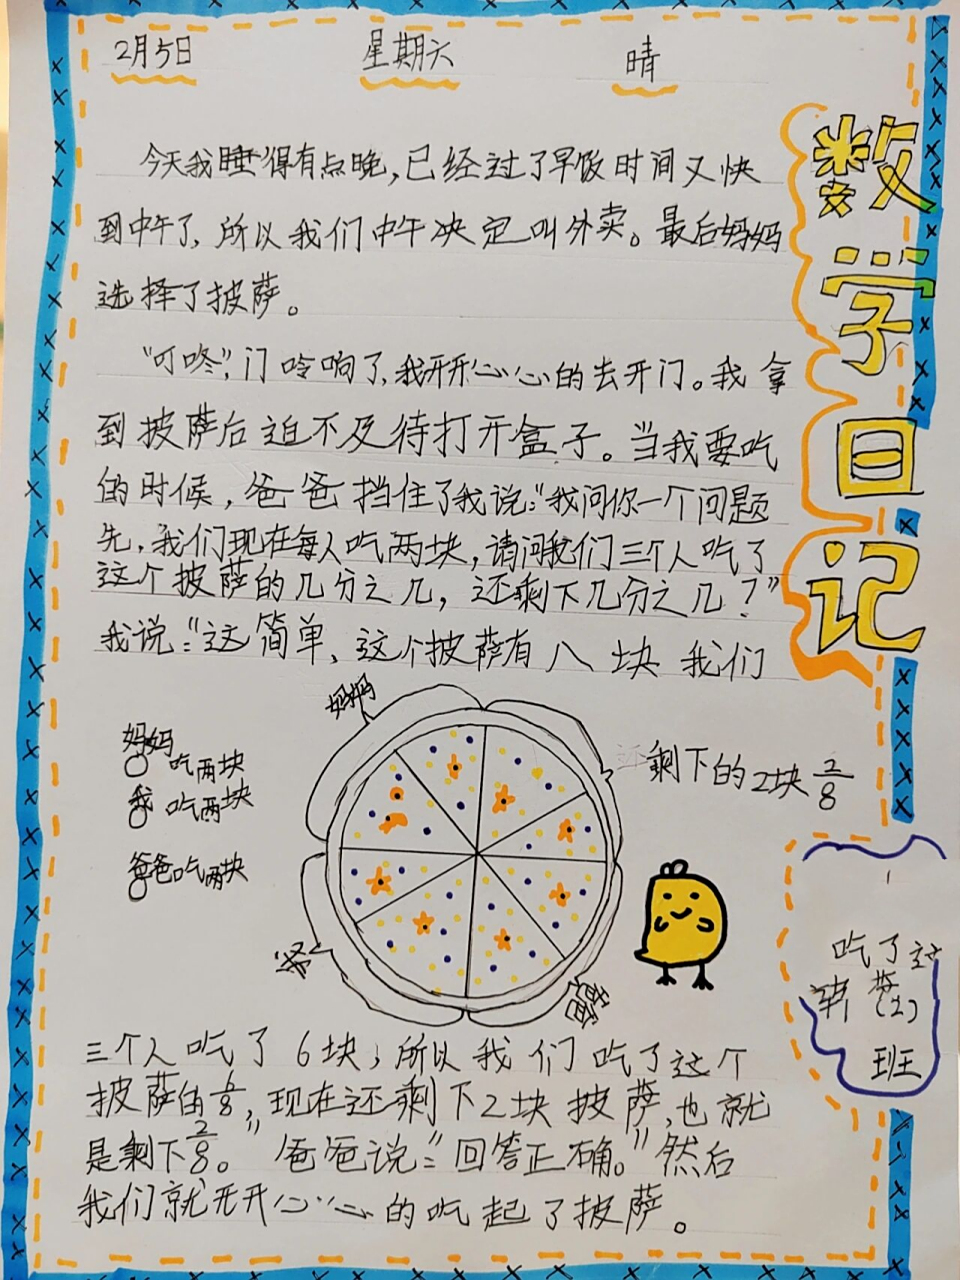 2月5日 星期六 晴
数学日记
今天我睡得有点晚,已经过了早饭时间又快
到中午了,所以我们中午决定叫外卖。最后妈妈
选择了披萨。
“叮咚”,门铃响了,我开开心心的去开门。我拿
到披萨后迫不及待打开盒子。当我要吃
的时候,爸爸挡住了我说:“我问你一个问题
先,我们现在每人吃两块,请问我们三个人吃了
这个披萨的几分之几,还剩下几分之几?”
我说:“这简单,这个披萨有八块我们
妈妈
妈妈
吃两块
我吃两块
爸爸吃两块
剩下的2块 2/8
爸爸
吃了这
(2)
班
三个人吃了6块,所以我们吃了这个
披萨的6/8,现在还剩下2块披萨,也就
是剩下2/8。”爸爸说:“回答正确。”然后
我们就开开心心的吃起了披萨。